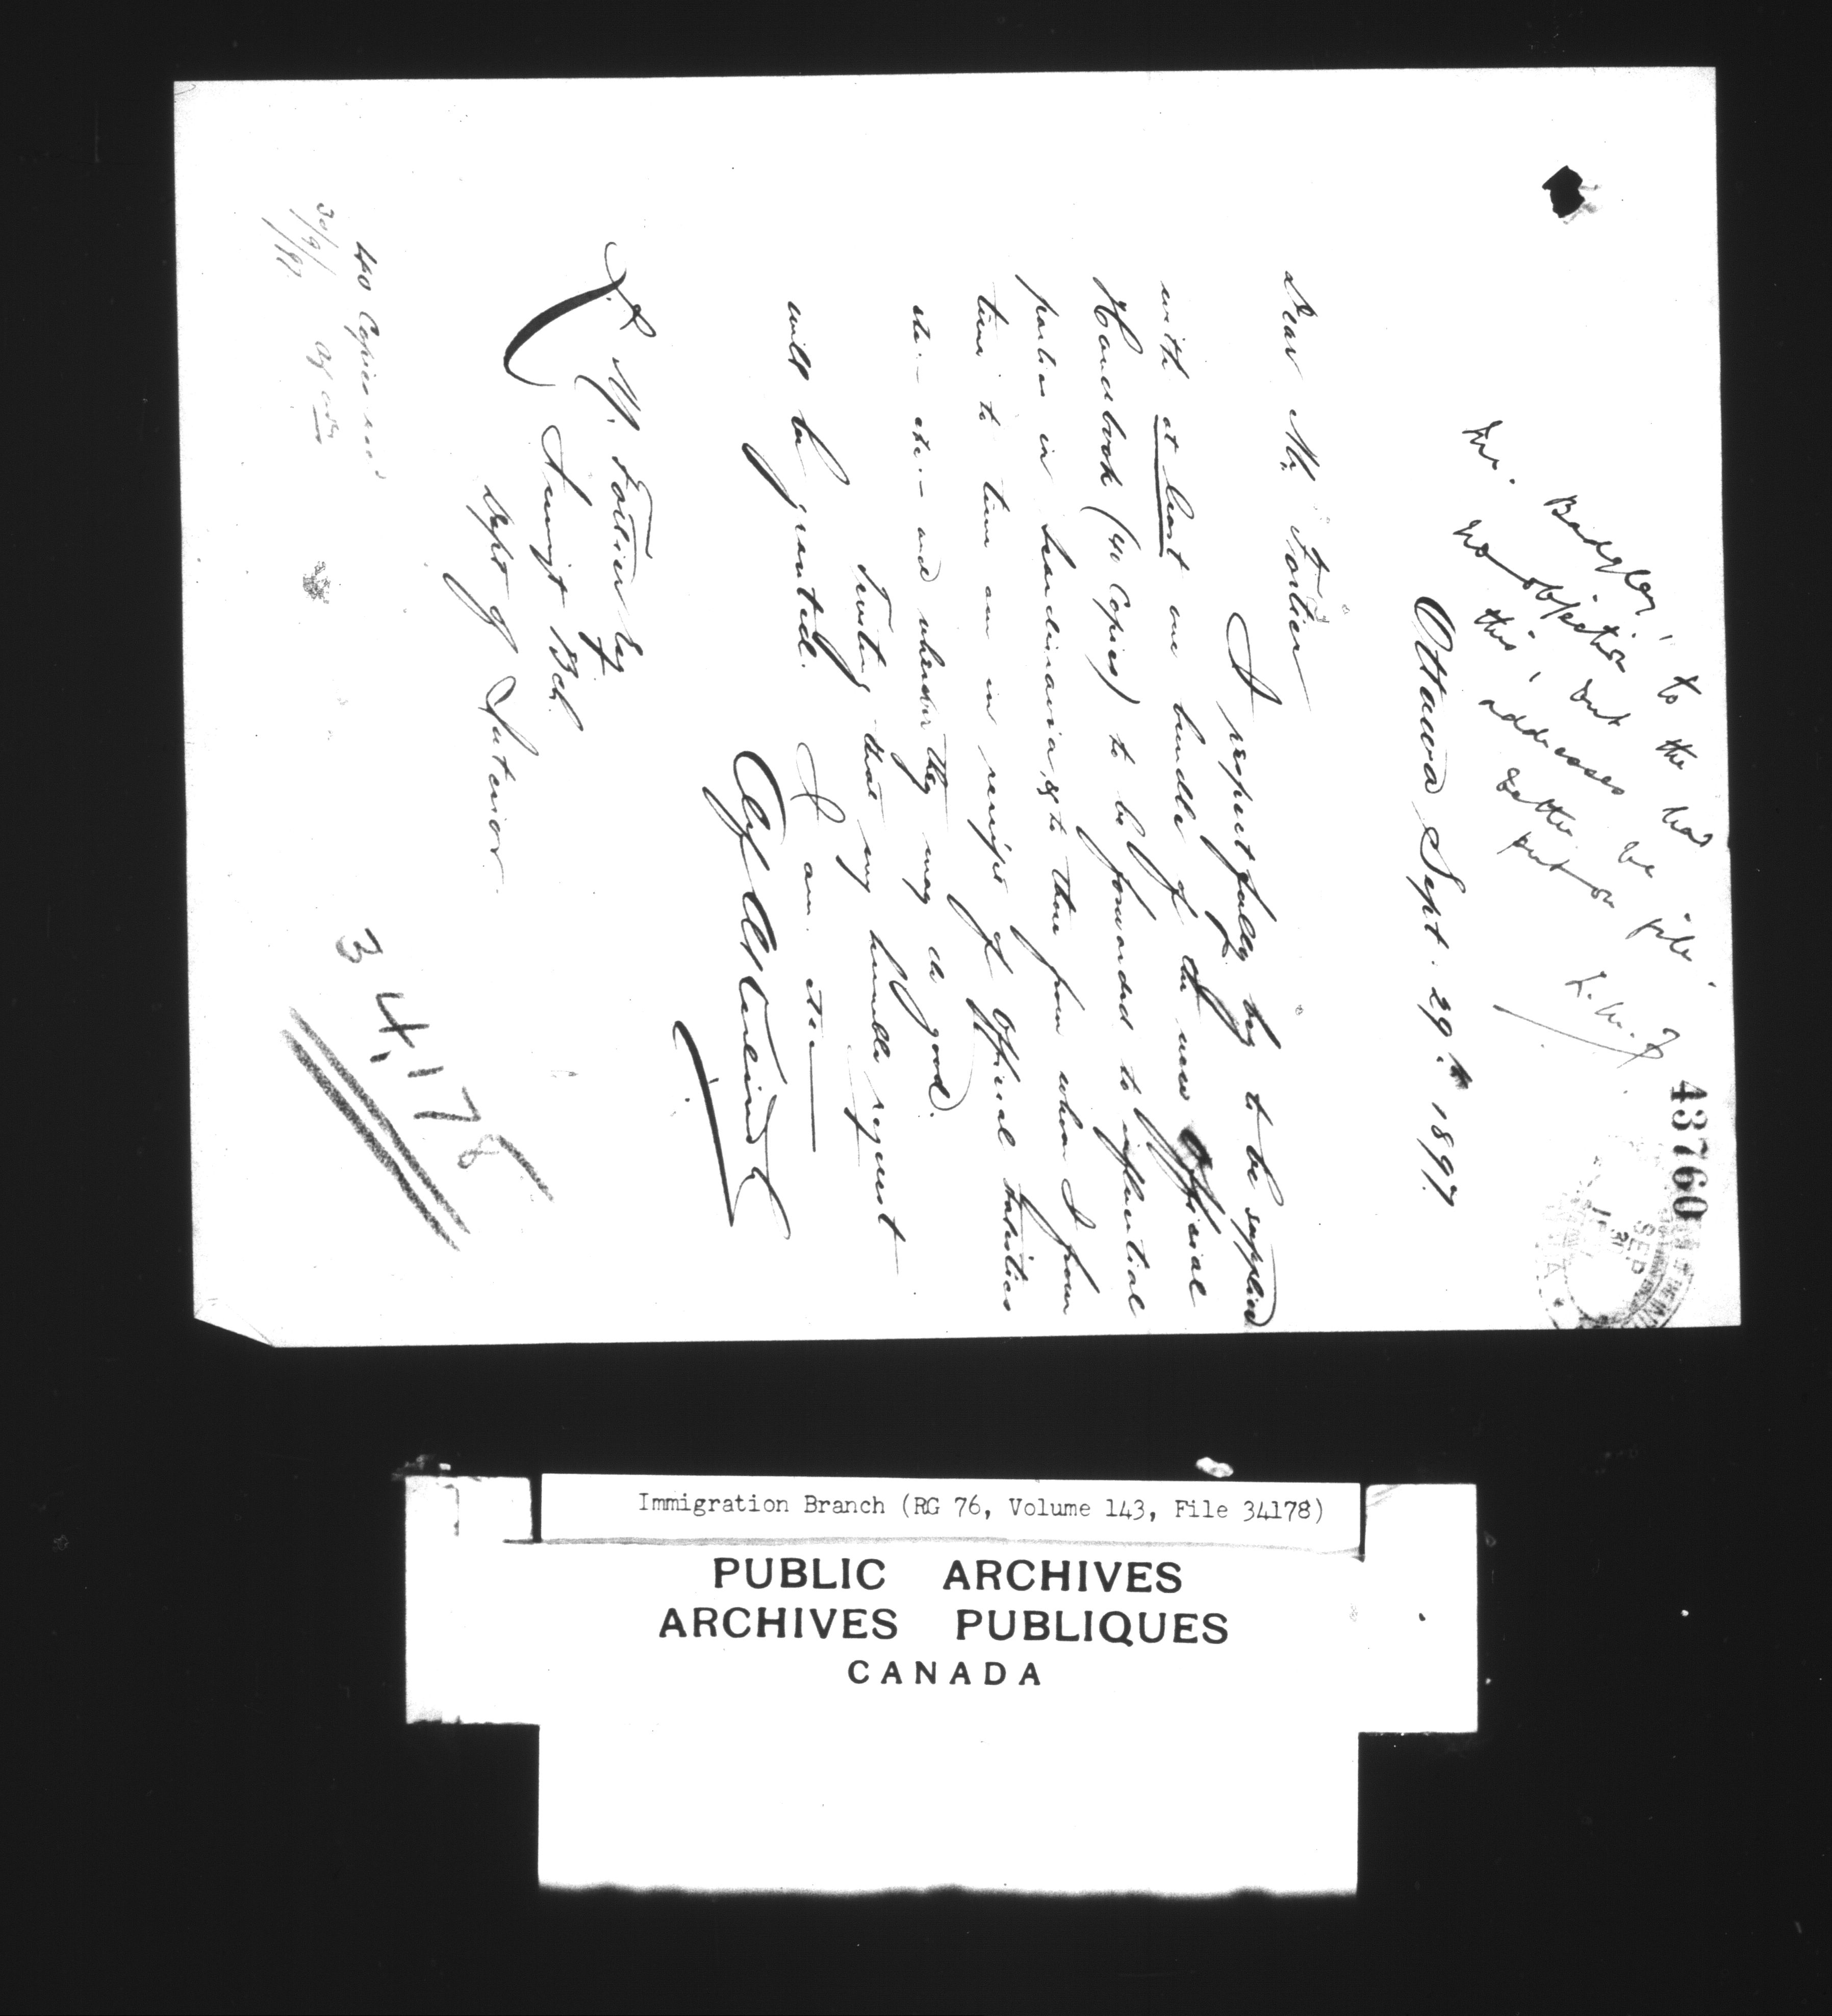 43760
Mr. Badgley,
no objection to
this, but the
addresses had
better be
put on file.
L.M.F
SEP
Ottawa Sept. 29.th 1897.
Dear Mr. Fortier
I respectfully beg to be supplied
with at least one bundle of the new Official
Handbook (40 Copies) to be forwarded to influential
parties in Scandinavia, & to those from whom I from
time to time am in receipt of Official statistics
etc. - etc. - and wherever they may do good.
Trusting that my humble request
will be granted.
I am etc
L. M. Fortier Esq
Dept of Interior.
40 Copies
30/9/97
34,178
Immigration Branch (RG 76, Volume 143, File 34178)
PUBLIC ARCHIVES
ARCHIVES PUBLIQUES
CANADA